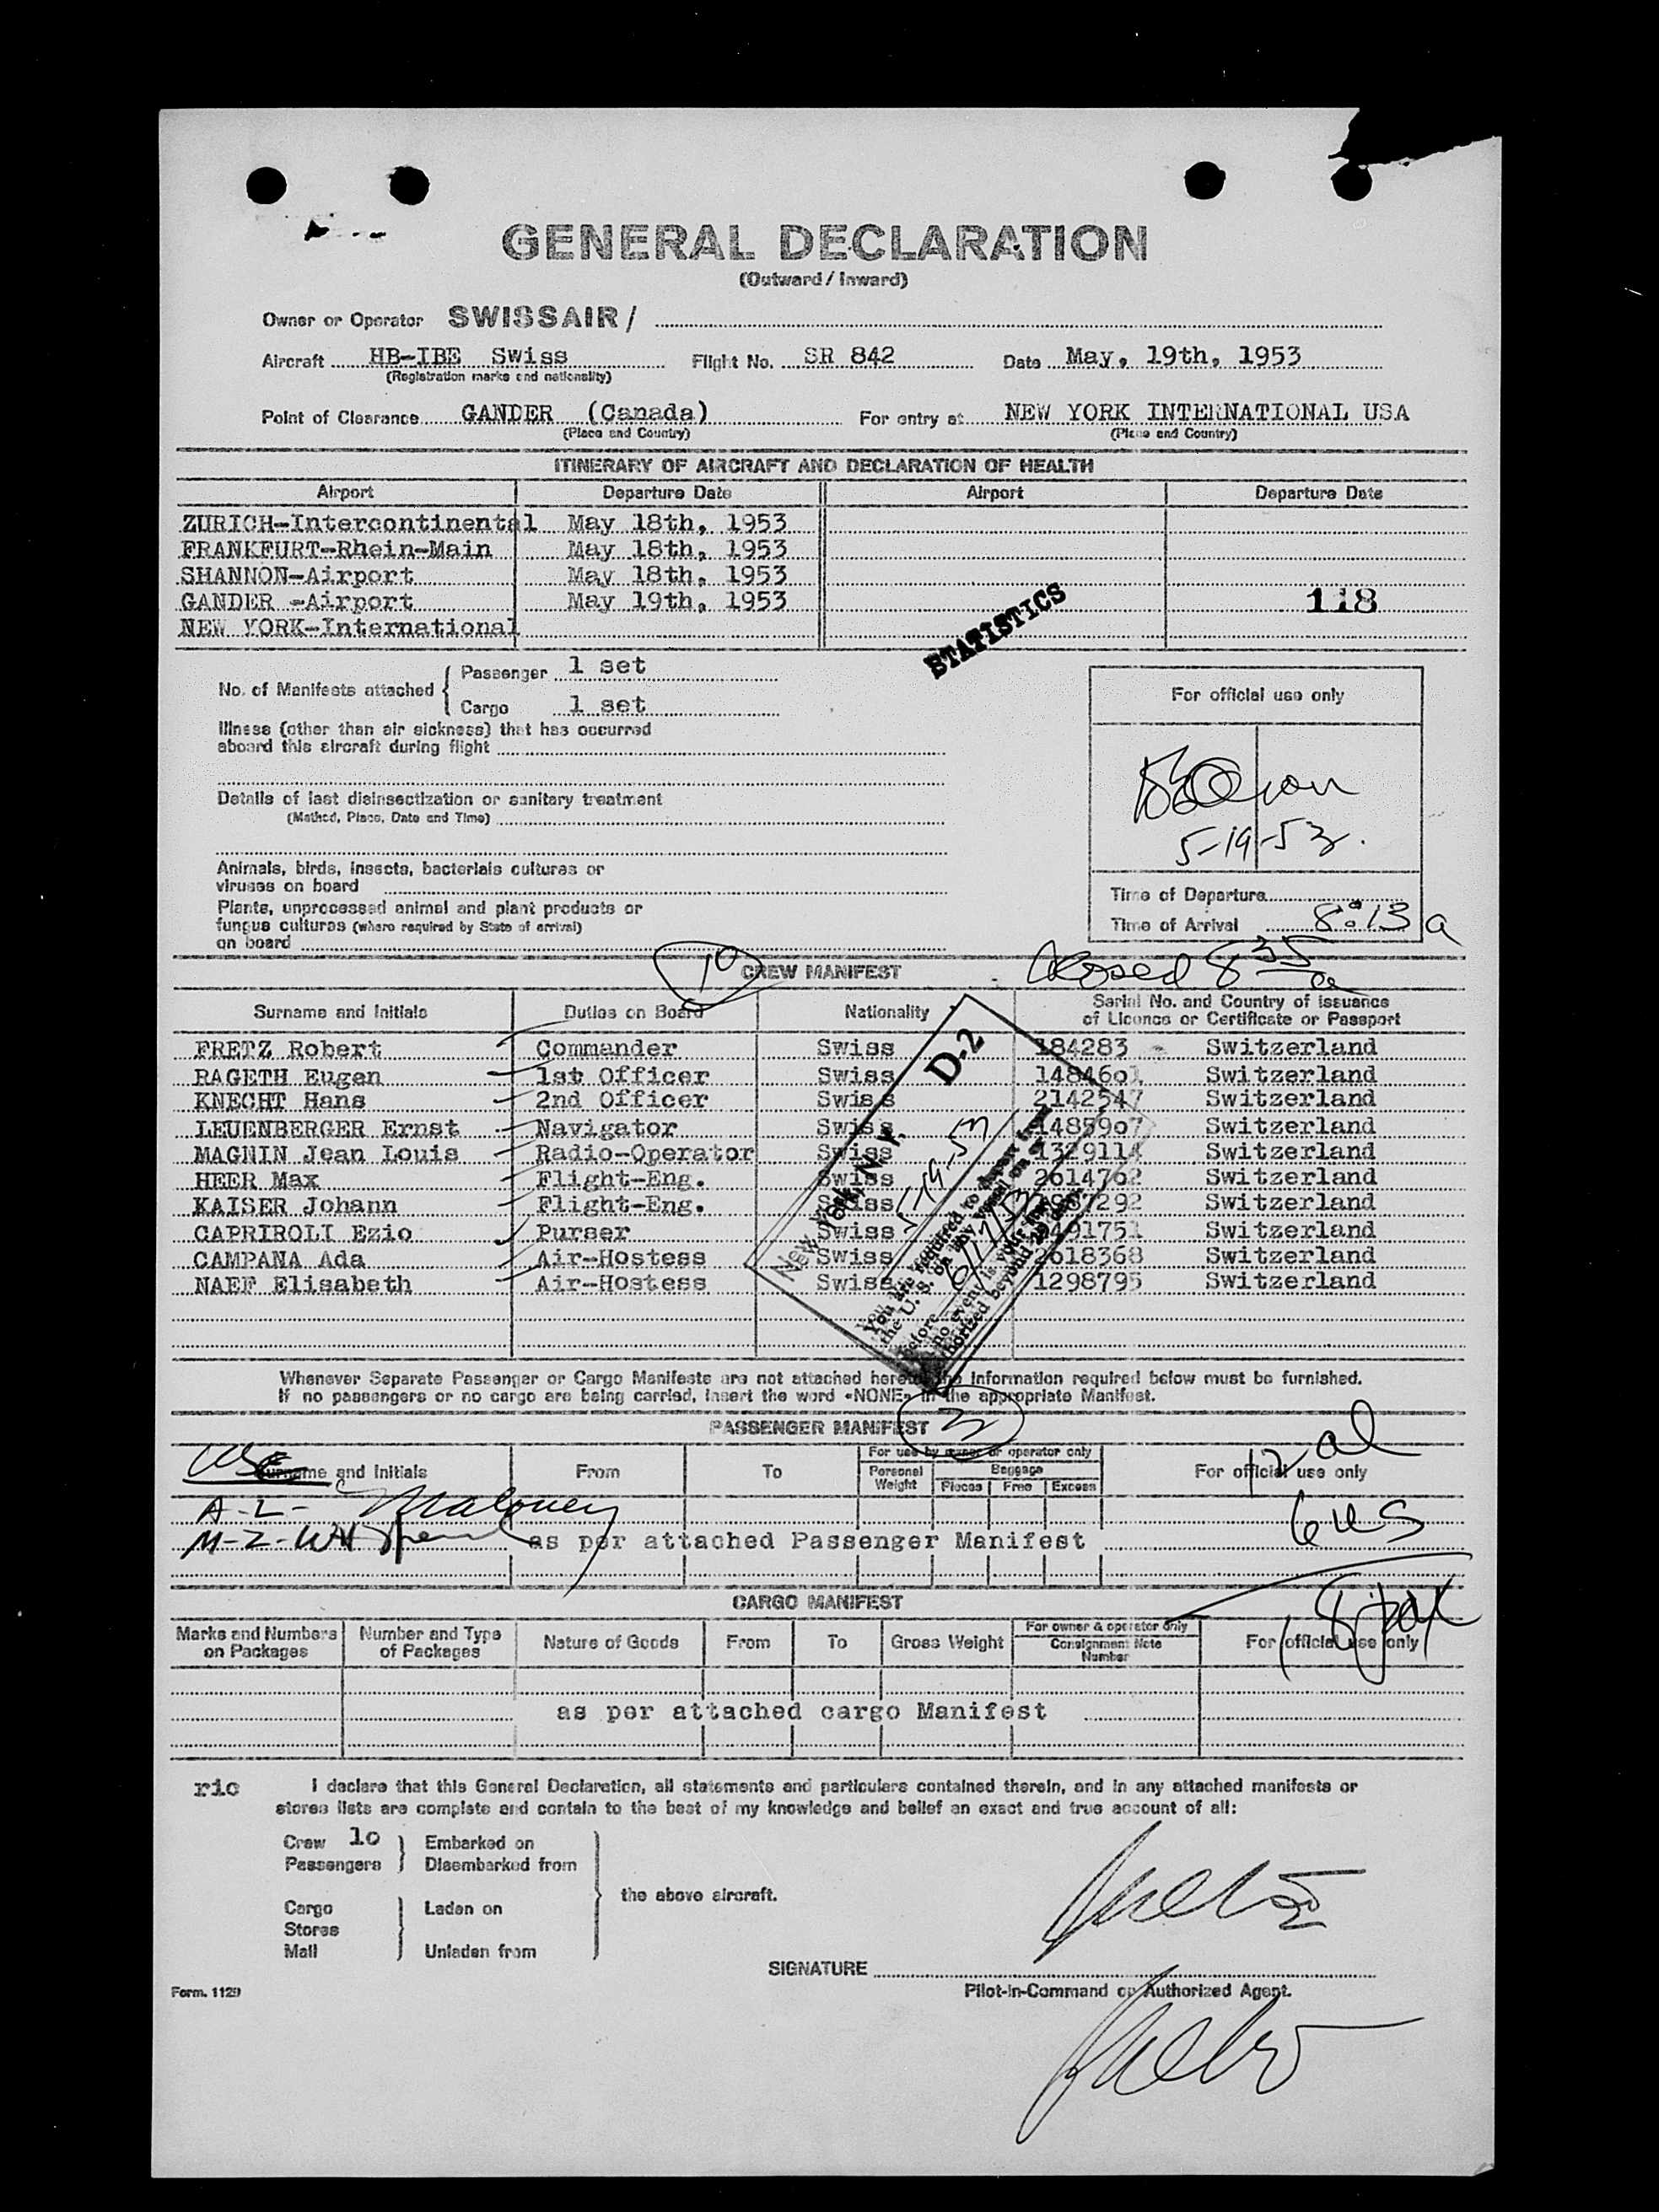 GENERAL DECLARATION
(Outward / Inward)
Owner or Operator SWISSAIR /
Aircraft HB-IBE Swiss Flight No. SR 842 Date May, 19th, 1953
(Registration marks and nationality)
Point of Clearance GANDER (Canada) For entry at NEW YORK INTERNATIONAL USA
(Place and Country) (Place and Country)
ITINERARY OF AIRCRAFT AND DECLARATION OF HEALTH
Airport Departure Date Airport Departure Date
ZURICH-Intercontinental May 18th, 1953
FRANKFURT-Rhein-Main May 18th, 1953
SHANNON-Airport May 18th, 1953
GANDER -Airport May 19th, 1953 118
NEW YORK-International
STATISTICS
No. of Manifests attached
Passenger 1 set
Cargo 1 set
For official use only
Illness (other than air sickness) that has occurred
aboard this aircraft during flight
Details of last disinsectization or sanitary treatment
(Method, Place, Date and Time)
5-19-53.
Animals, birds, insects, bacterials cultures or
viruses on board
Plants, unprocessed animal and plant products or
fungus cultures (where required by State of arrival)
on board
Time of Departure
Time of Arrival 8:13 a
10
Closed 8 35 a
CREW MANIFEST
Surname and Initials Duties on Board Nationality Serial No. and Country of issuance
of Licence or Certificate or Passport
FRETZ Robert Commander Swiss 184283 Switzerland
RAGETH Eugen 1st Officer Swiss 14846o1 Switzerland
KNECHT Hans 2nd Officer Swiss 2142547 Switzerland
LEUENBERGER Ernst Navigator Swiss 14859o7 Switzerland
MAGNIN Jean Louis Radio-Operator Swiss 1329114 Switzerland
HEER Max Flight-Eng. Swiss 2614762 Switzerland
KAISER Johann Flight-Eng. Swiss 7292 Switzerland
CAPRIROLI Ezio Purser Swiss 91751 Switzerland
CAMPANA Ada Air-Hostess Swiss 2618368 Switzerland
NAEF Elisabeth Air-Hostess Swiss 1298795 Switzerland
D-2
New York, N. Y.
5-19-53
You are required to depart from
the U. S. on any vessel on or
before 6/17/53
no event is your stay
authorized beyond 29 days
Whenever Separate Passenger or Cargo Manifests are not attached hereto the information required below must be furnished.
If no passengers or no cargo are being carried, insert the word «NONE» in the appropriate Manifest.
PASSENGER MANIFEST
3
For use by owner or operator only
Surname and Initials From To Personal Weight Baggage For official use only
Pieces Free Excess
12 al
A-L- Maloney
6 us
M-Z- WH
as per attached Passenger Manifest
18
CARGO MANIFEST
Marks and Numbers on Packages Number and Type of Packages Nature of Goods From To Gross Weight For owner & operator only Consignment Note Number For official use only
as per attached cargo Manifest
ric I declare that this General Declaration, all statements and particulars contained therein, and in any attached manifests or
stores lists are complete and contain to the best of my knowledge and belief an exact and true account of all:
Crew 1o Embarked on
Passengers Disembarked from
the above aircraft.
Cargo Laden on
Stores
Mail Unladen from
SIGNATURE
Form. 1129 Pilot-in-Command or Authorized Agent.